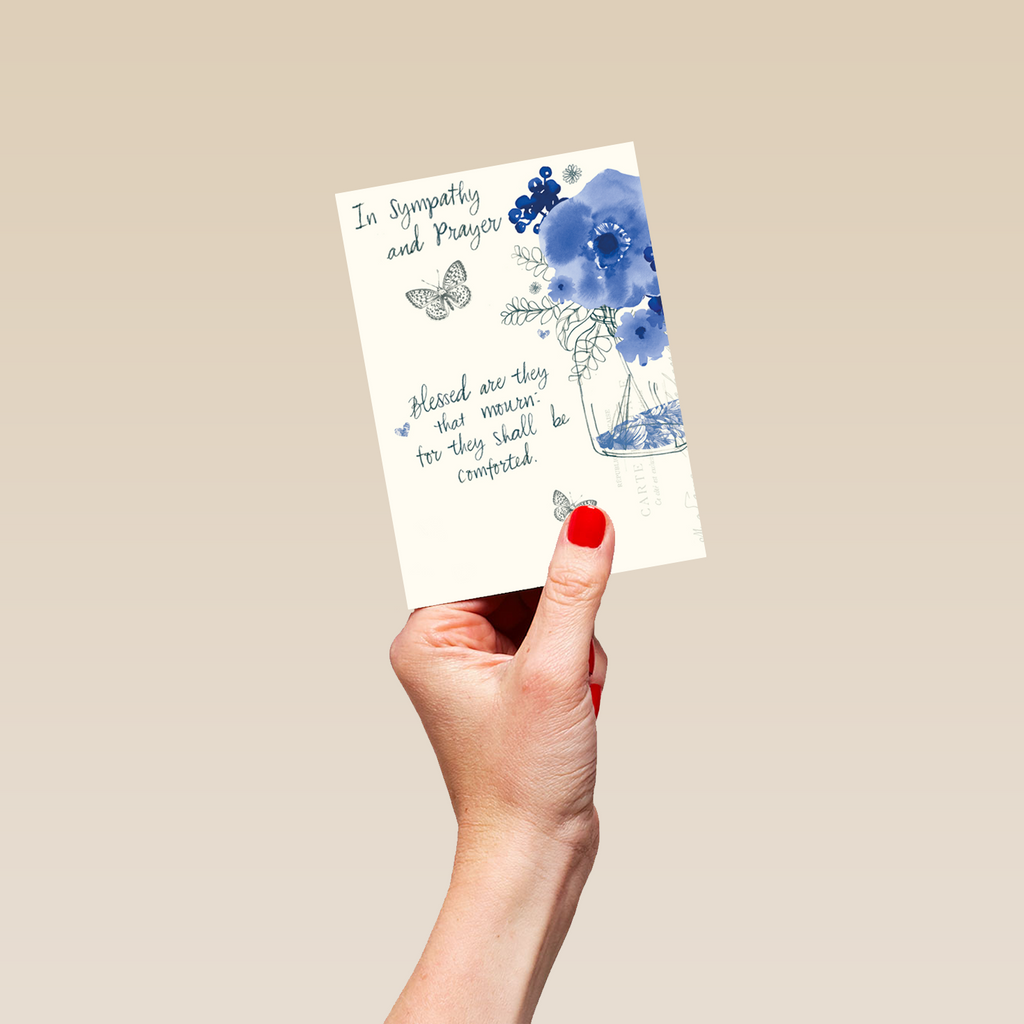 In Sympathy
and Prayer
Blessed are they
that mourn:
for they shall be
comforted.
CARTE